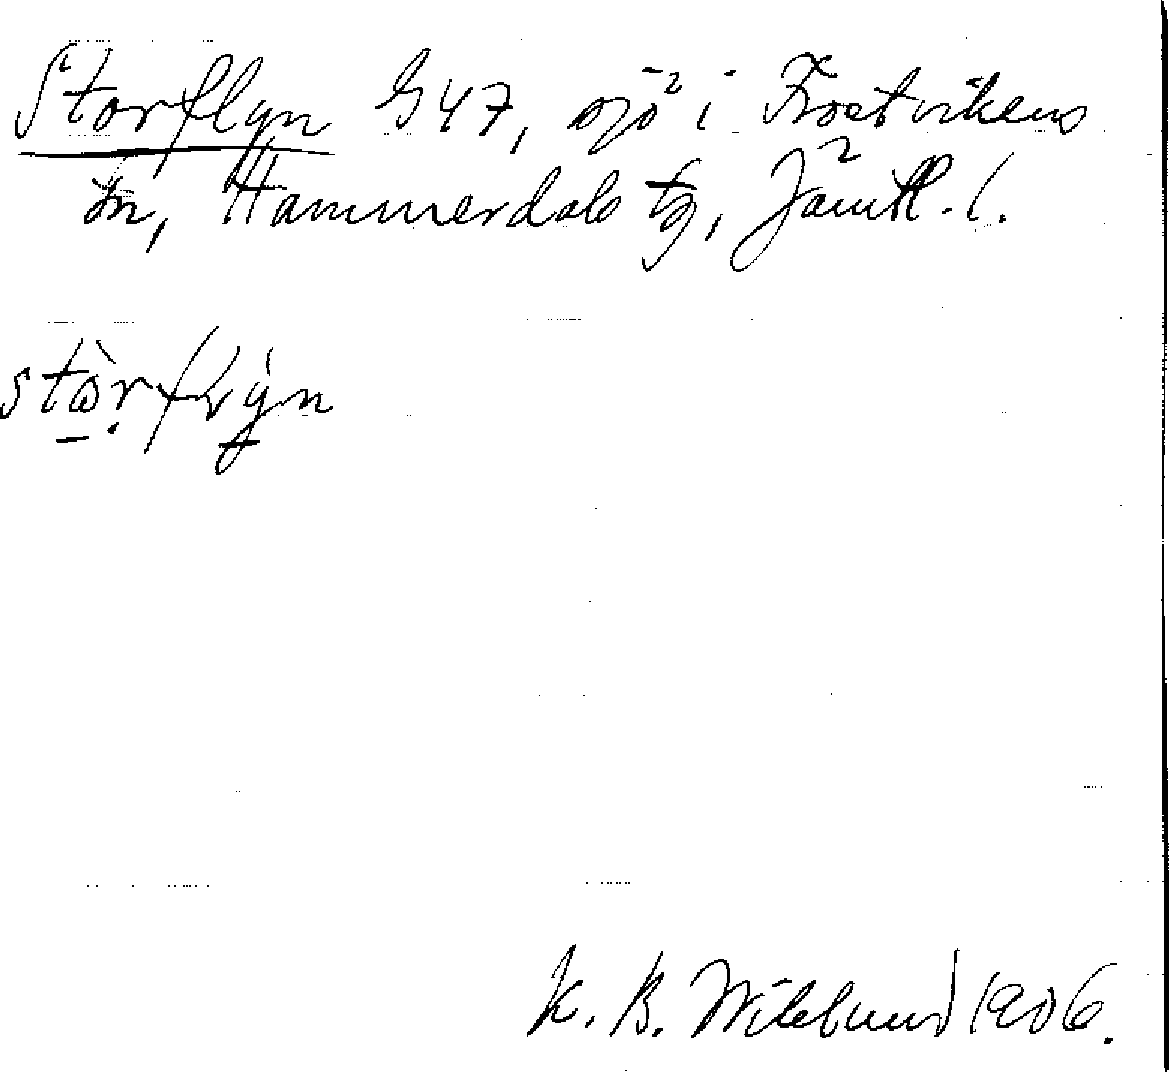 Storflyn G47, sjö i Frostvikens
sn, Hammerdals tg, Jämtl. l.
K. B. Wiklund 1906.